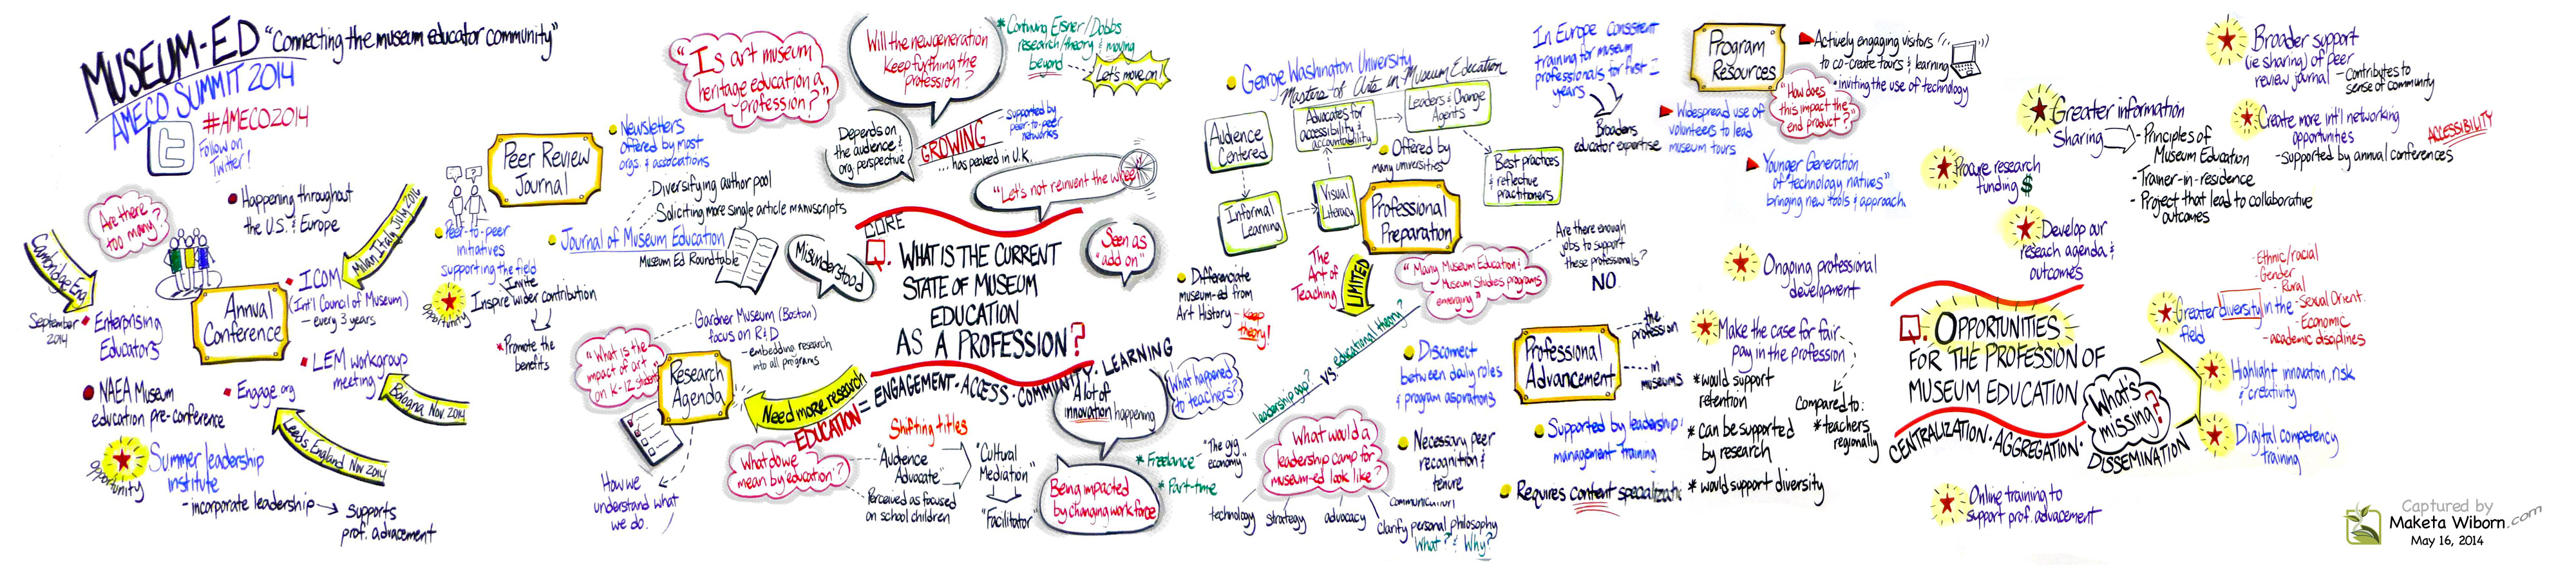 MUSEUM-ED "Connecting the museum educator community"
AMECO SUMMIT 2014
#AMECO2014
Follow on
Twitter!
Are there
too many?
Happening throughout
the U.S. & Europe
Milan Italy July 2016
Cambridge Eng
September
2014
Enterprising
Educators
Annual
Conference
ICOM
(Int'l Council of Museum)
- every 3 years
LEM workgroup
meeting
Bologna Nov. 2014
NAEA Museum
education pre-conference
Engage.org
Leeds, England Nov 2014
opportunity
Summer leadership
institute
- incorporate leadership → supports
prof. advacement
Peer Review
Journal
Newsletters
offered by most
orgs. & assocations
- Diversifying author pool
Soliciting more single article manuscripts
Journal of Museum Education
Museum Ed Roundtable
Peer-to-peer
initiatives
supporting the field
Invite
opportunity
Inspire wider contribution
* Promote the
benefits
"Is art museum
heritage education a
profession?"
Will the new generation
keep furthing the
profession?
* Continuing Eisner/Dobbs
research/theory & moving
beyond
Let's move on!
Depends on
the audience &
org perspective
GROWING
- supported by
peer-to-peer
networks
... has peaked in U.K.
"Let's not reinvent the wheel"
Misunderstood
Seen as
"add on"
CORE
Q. WHAT IS THE CURRENT
STATE OF MUSEUM
EDUCATION
AS A PROFESSION?
EDUCATION = ENGAGEMENT · ACCESS · COMMUNITY · LEARNING
Gardner Museum (Boston)
focus on R&D
- embedding research
into all programs
"What is the
impact of art
on K-12 students"
Research
Agenda
Need more research
How we
understand what
we do.
What do we
mean by "education"?
Shifting titles
"Audience
Advocate"
Perceived as focused
on school children
"Cultural
Mediation"
"Facilitator"
A lot of
innovation happening
What happened
to teachers?
Being impacted
by changing work force
* Freelance
* Part-time
"The gig
economy"
George Washington University
Masters of Arts in Museum Education
Audience
Centered
Informal
Learning
Visual
Literacy
Advocates for
accessibility &
accountability
Leaders & Change
Agents
Best practices
& reflective
practitioners
Offered by
many universities
Professional
Preparation
The
Art of
Teaching
LIMITED
"Many Museum Education &
Museum Studies programs
emerging"
Are there enough
jobs to support
these professionals?
NO.
Differenciate
museum-ed from
Art History - Keep
theory!
leadership gap? vs. educational theory?
What would a
leadership camp for
museum-ed look like?
technology
strategy
advocacy
communication
clarify personal philosophy
What? & Why?
Disconnect
between daily roles
& program aspirations
Necessary peer
recognition &
tenure
In Europe consistent
training for museum
professionals for first 2
years
Broadens
educator expertise
Professional
Advancement
the
profession
in
museums
Supported by leadership &
management training
Requires content specialization
Program
Resources
Actively engaging visitors
to co-create tours & learning
• inviting the use of technology
"How does
this impact the
end product?"
Widespread use of
volunteers to lead
museum tours
Younger Generation
of "technology natives"
bringing new tools & approach
Ongoing professional
development
Make the case for fair
pay in the profession
* would support
retention
* can be supported
by research
* would support diversity
Compared to:
* teachers
regionally
Q. OPPORTUNITIES
FOR THE PROFESSION OF
MUSEUM EDUCATION
CENTRALIZATION · AGGREGATION · DISSEMINATION
What's
missing?
Procure research
funding $
Greater information
Sharing
- Principles of
Museum Education
- Trainer-in-residence
- Project that lead to collaborative
outcomes
Develop our
reseach agenda &
outcomes
Broader support
(ie sharing) of peer
review journal - Contributes to
sense of community
Create more int'l networking
opportunities
- Supported by annual conferences
ACCESSIBILITY
Greater diversity in the
field
- Ethnic/racial
- Gender
- Rural
- Sexual Orient.
- Economic
- academic disciplines
Highlight innovation, risk
& creativity
Digital competency
training
Online training to
support prof. advacement
Captured by
Maketa Wilborn.com
May 16, 2014